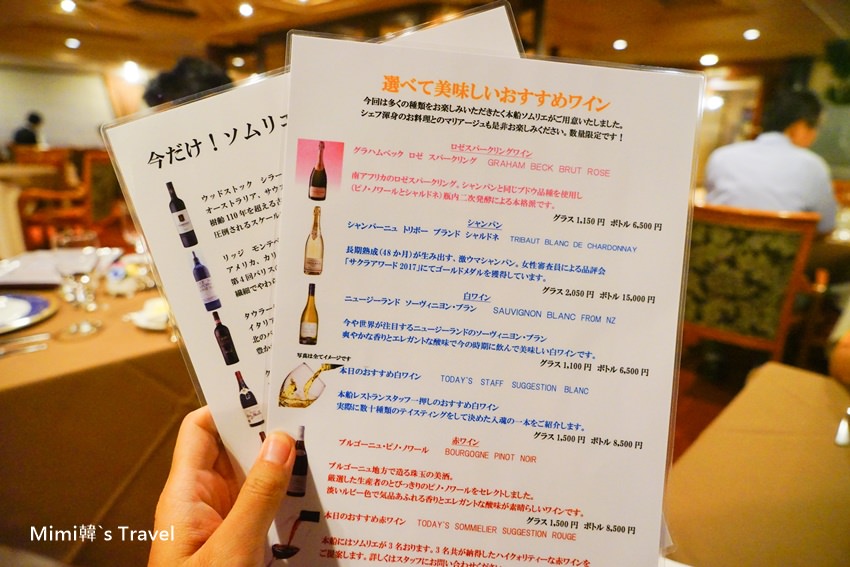 選べて美味しいおすすめワイン
今回は多くの種類をお楽しみいただきたく本船ソムリエがご用意いたしました。
シェフ渾身のお料理とのマリアージュも是非お楽しみください。数量限定です！
ロゼスパークリングワイン
グラハムベック ロゼ スパークリング GRAHAM BECK BRUT ROSE
南アフリカのロゼスパークリング。シャンパンと同じブドウ品種を使用し
（ピノ・ノワールとシャルドネ）瓶内二次発酵による本格派です。
グラス 1,150 円 ボトル 6,500 円
シャンパン
シャンパーニュ トリボー ブランド シャルドネ TRIBAUT BLANC DE CHARDONNAY
長期熟成（48 か月）が生み出す、激ウマシャンパン。女性審査員による品評会
「サクラアワード 2017」にてゴールドメダルを獲得しています。
グラス 2,050 円 ボトル 15,000 円
白ワイン
ニュージーランド ソーヴィニヨン・ブラン SAUVIGNON BLANC FROM NZ
今や世界が注目するニュージーランドのソーヴィニヨン・ブラン
爽やかな香りとエレガントな酸味で今の時期に飲んで美味しい白ワインです。
グラス 1,100 円 ボトル 6,500 円
写真は全てイメージです
本日のおすすめ白ワイン TODAY'S STAFF SUGGESTION BLANC
本船レストランスタッフ一押しのおすすめ白ワイン
実際に数十種類のテイスティングをして決めた入魂の一本をご紹介します。
グラス 1,500 円 ボトル 8,500 円
赤ワイン
ブルゴーニュ・ピノ・ノワール BOURGOGNE PINOT NOIR
ブルゴーニュ地方で造る珠玉の美酒。
厳選した生産者のとびっきりのピノ・ノワールをセレクトしました。
淡いルビー色で気品あふれる香りとエレガントな酸味が素晴らしいワインです。
グラス 1,500 円 ボトル 8,500 円
本日のおすすめ赤ワイン TODAY'S SOMMELIER SUGGESTION ROUGE
本船にはソムリエが 3 名おります。3 名共が納得したハイクォリティーな赤ワインを
ご提案します。詳しくはスタッフにお問い合わせください
今だけ！ソムリエ
ウッドストック シラー
オーストラリア、サウ
樹齢 110 年を超える
圧倒されるスケール
リッジ モンテ
アメリカ、カリ
第 4 回パリス
繊細でやわ
タウラー
イタリア
北の
豊か
Mimi韓`s Travel